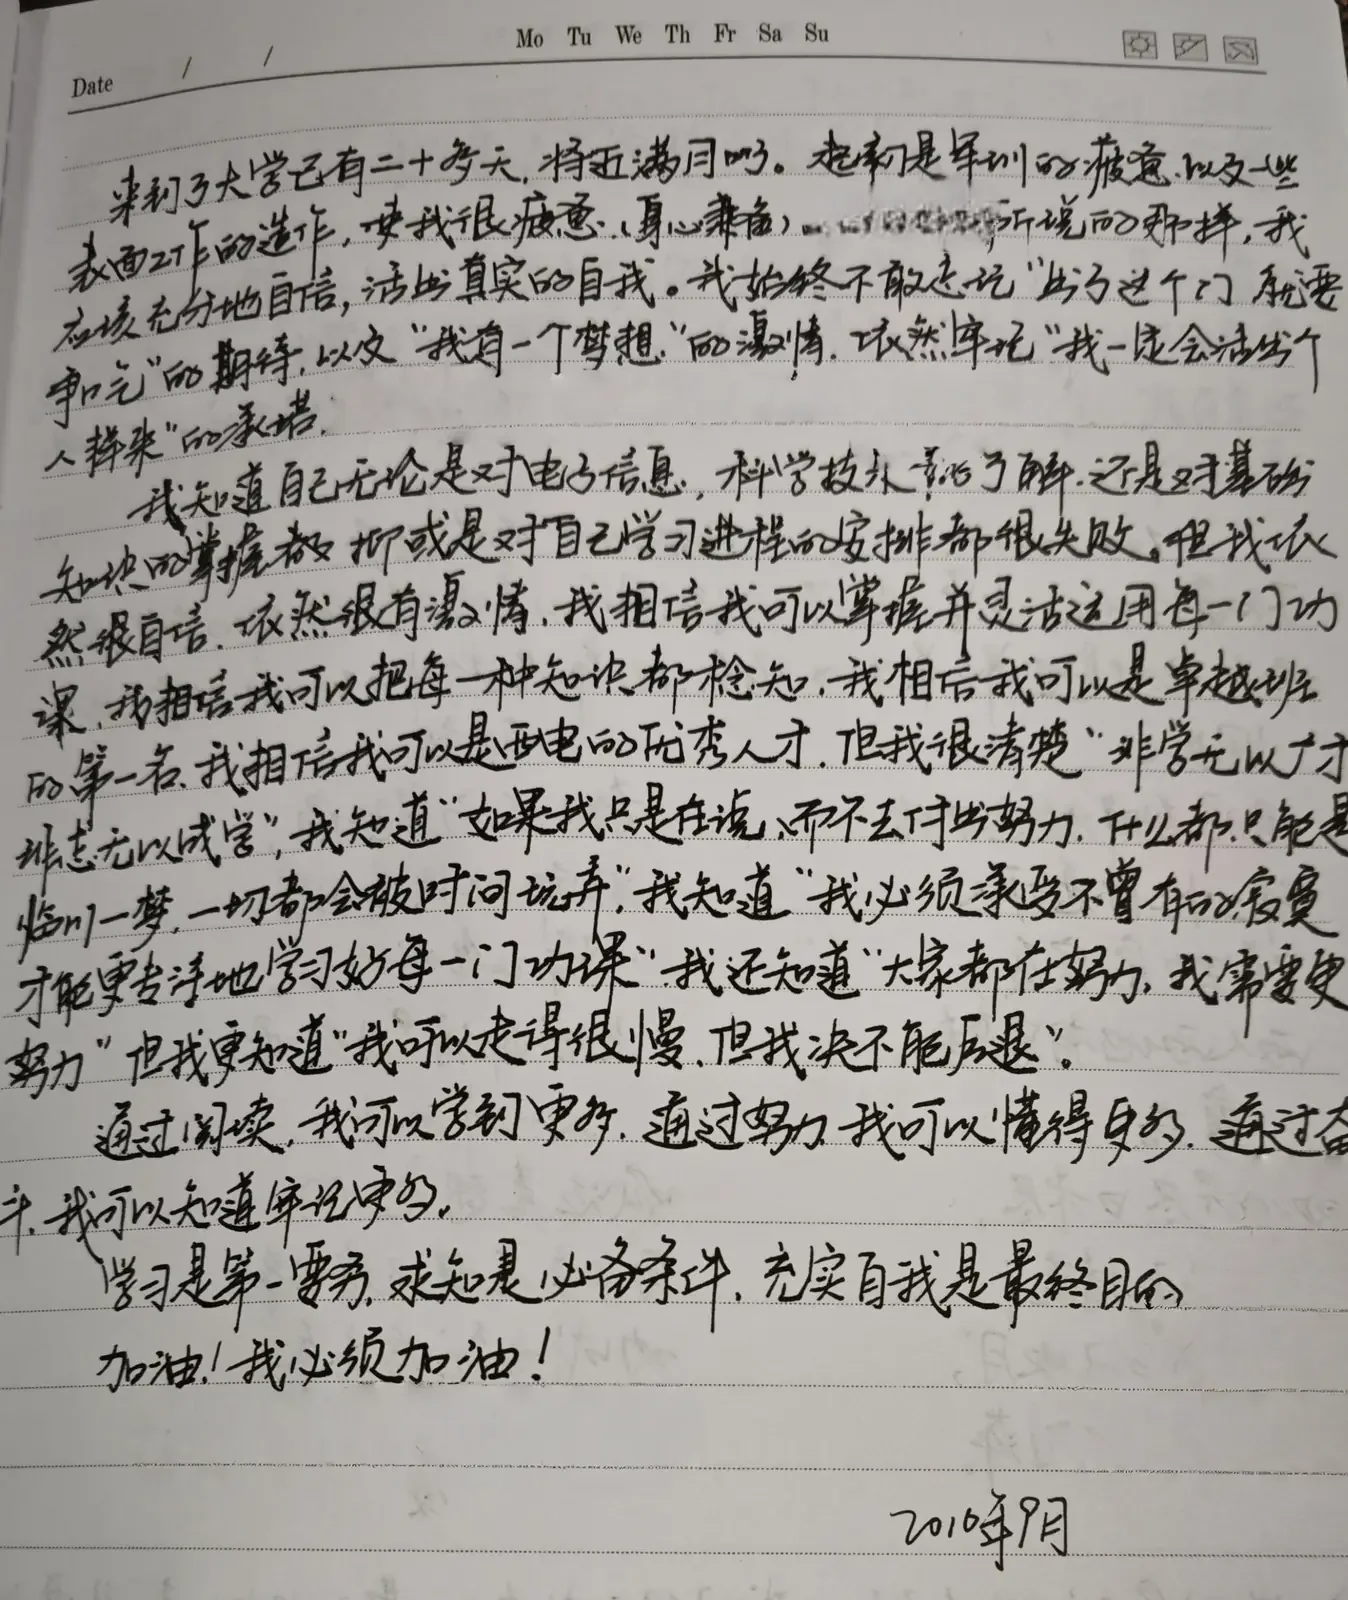 Mo Tu We Th Fr Sa Su
Date / /
来到了大学已有二十多天,将近满月了。起初是军训的疲惫,以及一些
表面工作的造作,使我很疲惫,(身心兼备) 所说的那样,我
应该充分地自信,活出真实的自我。我始终不敢忘记“出了这个门 就要
争口气”的期待,以及“我有一个梦想”的激情,依然牢记“我一定会活出个
人样来”的承诺.
我知道自己无论是对电子信息,科学技术 了解,还是对基础
知识的掌握 抑或是对自己学习进程的安排都很失败。但我依
然很自信,依然很有激情,我相信我可以掌握并灵活运用每一门功
课,我相信我可以把每一种知识都 知,我相信我可以是卓越班
的第一名,我相信我可以是西电的优秀人才,但我很清楚“非学无以广才
非志无以成学”,我知道“如果我只是在说,而不去付出努力,什么都只能是
临川一梦,一切都会被时间玩弄”,我知道“我必须承受不曾有的寂寞
才能更专注地学习好每一门功课”,我还知道“大家都在努力,我需要更
努力”但我更知道“我可以走得很慢,但我决不能后退”。
通过阅读,我可以学到更多,通过努力,我可以懂得更多,通过奋
斗,我可以知道牢记更多。
学习是第一要务,求知是必备条件,充实自我是最终目的
加油!我必须加油!
2016年9月